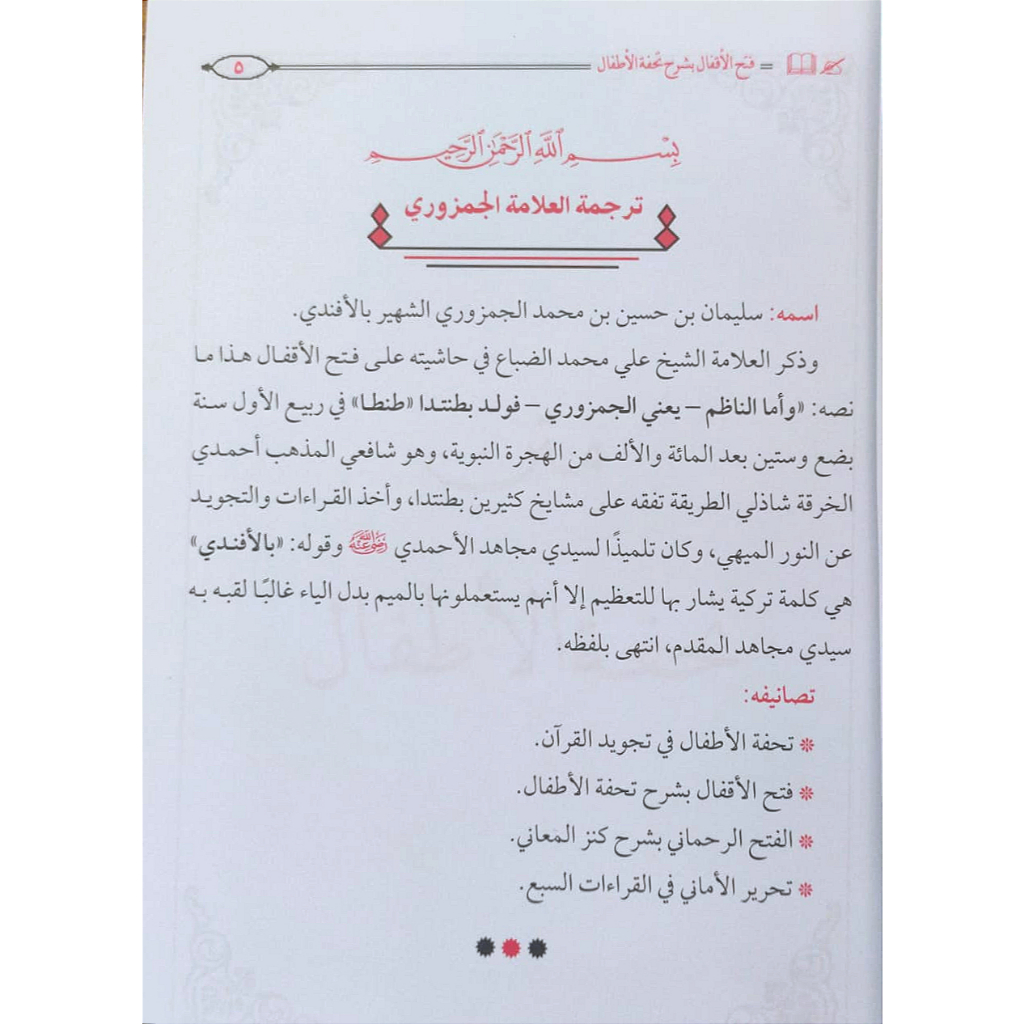 فتح الأقفال بشرح تحفة الأطفال = ٥
بِسْمِ ٱللَّهِ ٱلرَّحْمَٰنِ ٱلرَّحِيمِ
ترجمة العلامة الجمزوري
اسمه: سليمان بن حسين بن محمد الجمزوري الشهير بالأفندي.
وذكر العلامة الشيخ علي محمد الضباع في حاشيته على فتح الأقفال هذا ما
نصه: «وأما الناظم – يعني الجمزوري – فولد بطنتدا «طنطا» في ربيع الأول سنة
بضع وستين بعد المائة والألف من الهجرة النبوية، وهو شافعي المذهب أحمدي
الخرقة شاذلي الطريقة تفقه على مشايخ كثيرين بطنتدا، وأخذ القراءات والتجويد
عن النور الميهي، وكان تلميذًا لسيدي مجاهد الأحمدي رضي الله عنه وقوله: «بالأفندي»
هي كلمة تركية يشار بها للتعظيم إلا أنهم يستعملونها بالميم بدل الياء غالبًا لقبه به
سيدي مجاهد المقدم، انتهى بلفظه.
تصانيفه:
* تحفة الأطفال في تجويد القرآن.
* فتح الأقفال بشرح تحفة الأطفال.
* الفتح الرحماني بشرح كنز المعاني.
* تحرير الأماني في القراءات السبع.